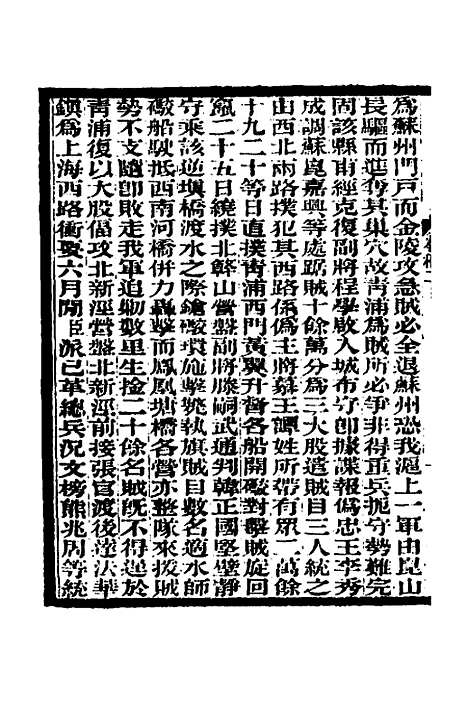 為蘇州門戶而金陵攻急賊必全退蘇州恐我滬上一軍由崑山
長驅而進擣其巢穴故青浦為賊所必爭非得重兵扼守勢難完
固該縣甫經克復副將程學啟入城布守卽據諜報偽忠王李秀
成調蘇崑嘉興等處踞賊十餘萬分為三大股遣賊目三人統之
由西北兩路撲犯其西路係偽主將慕王譚姓所帶有眾二萬餘
十九二十等日直撲青浦西門黃翼升督各船開礮對擊賊旋回
竄二十五日繞撲北簳山營盤副將滕嗣武通判韓正國堅壁靜
守乘該逆填橋渡水之際鎗礮環施擊斃執旗賊目數名適水師
礮船駛抵西南河橋併力轟擊而鳳凰塘橋各營亦整隊來援賊
勢不支隨卽敗走我軍追
數里生擒二十餘名賊旣不得逞於
青浦復以大股偪攻北新涇營盤北新涇前接張官渡後達法華
鎮為上海西路衝要六月間臣派已革總兵況文榜熊兆周等統